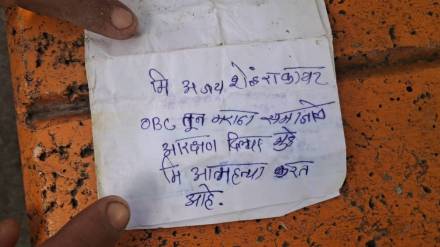 मि अजय
OBC तून मराठा समाजाला
आरक्षण दिल्या मुळे
मि आत्महत्या करत
आहे.